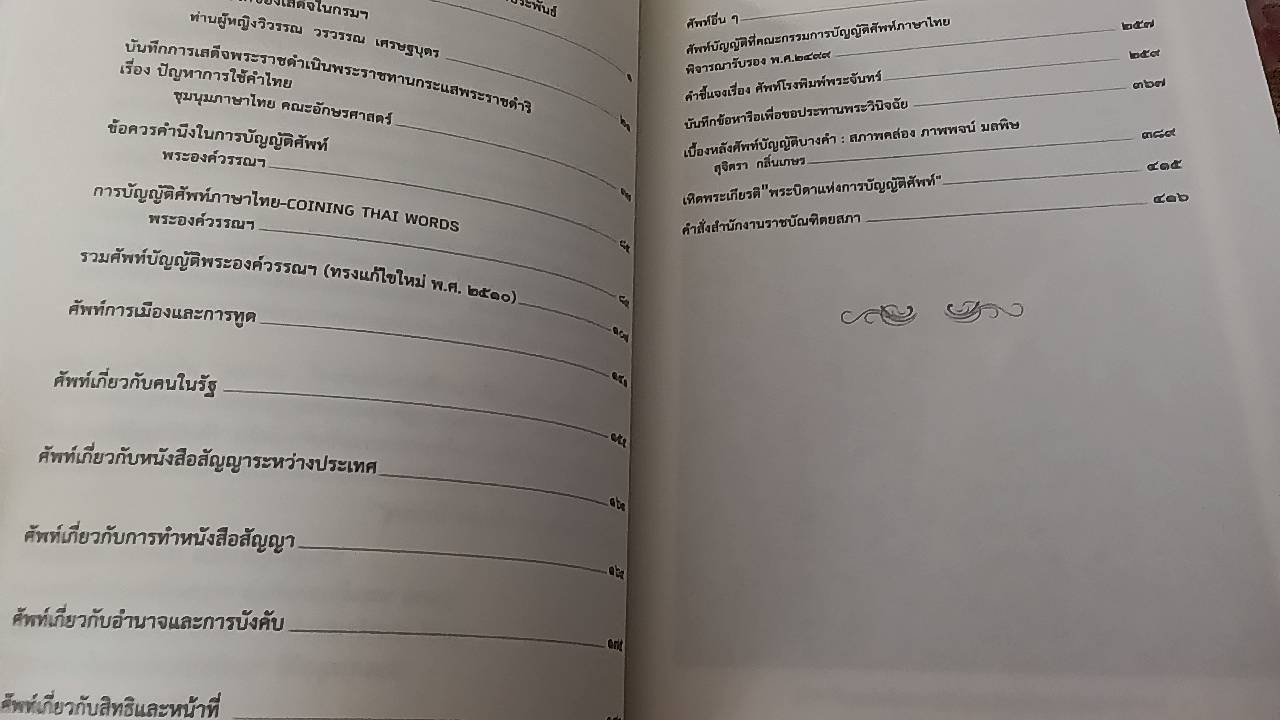 ของเสด็จในกรมฯ
ท่านผู้หญิงวิวรรณ วรวรรณ เศรษฐบุตร ๑
บันทึกการเสด็จพระราชดำเนินพระราชทานกระแสพระราชดำริ
เรื่อง ปัญหาการใช้คำไทย
ชุมนุมภาษาไทย คณะอักษรศาสตร์
ข้อควรคำนึงในการบัญญัติศัพท์
พระองค์วรรณฯ
การบัญญัติศัพท์ภาษาไทย-COINING THAI WORDS
พระองค์วรรณฯ
รวมศัพท์บัญญัติพระองค์วรรณฯ (ทรงแก้ไขใหม่ พ.ศ. ๒๕๑๐)
ศัพท์การเมืองและการทูต
ศัพท์เกี่ยวกับคนในรัฐ
ศัพท์เกี่ยวกับหนังสือสัญญาระหว่างประเทศ
ศัพท์เกี่ยวกับการทำหนังสือสัญญา
ศัพท์เกี่ยวกับอำนาจและการบังคับ
ศัพท์เกี่ยวกับสิทธิและหน้าที่
ศัพท์อื่น ๆ
ศัพท์บัญญัติที่คณะกรรมการบัญญัติศัพท์ภาษาไทย
พิจารณารับรอง พ.ศ.๒๔๙๙ ๒๕๗
คำชี้แจงเรื่อง ศัพท์โรงพิมพ์พระจันทร์ ๒๕๙
บันทึกข้อหารือเพื่อขอประทานพระวินิจฉัย ๓๖๗
เบื้องหลังศัพท์บัญญัติบางคำ : สภาพคล่อง ภาพพจน์ มลพิษ
สุจิตรา กลิ่นเกษร ๓๘๙
เทิดพระเกียรติ"พระบิดาแห่งการบัญญัติศัพท์" ๔๑๕
คำสั่งสำนักงานราชบัณฑิตยสภา ๔๑๖